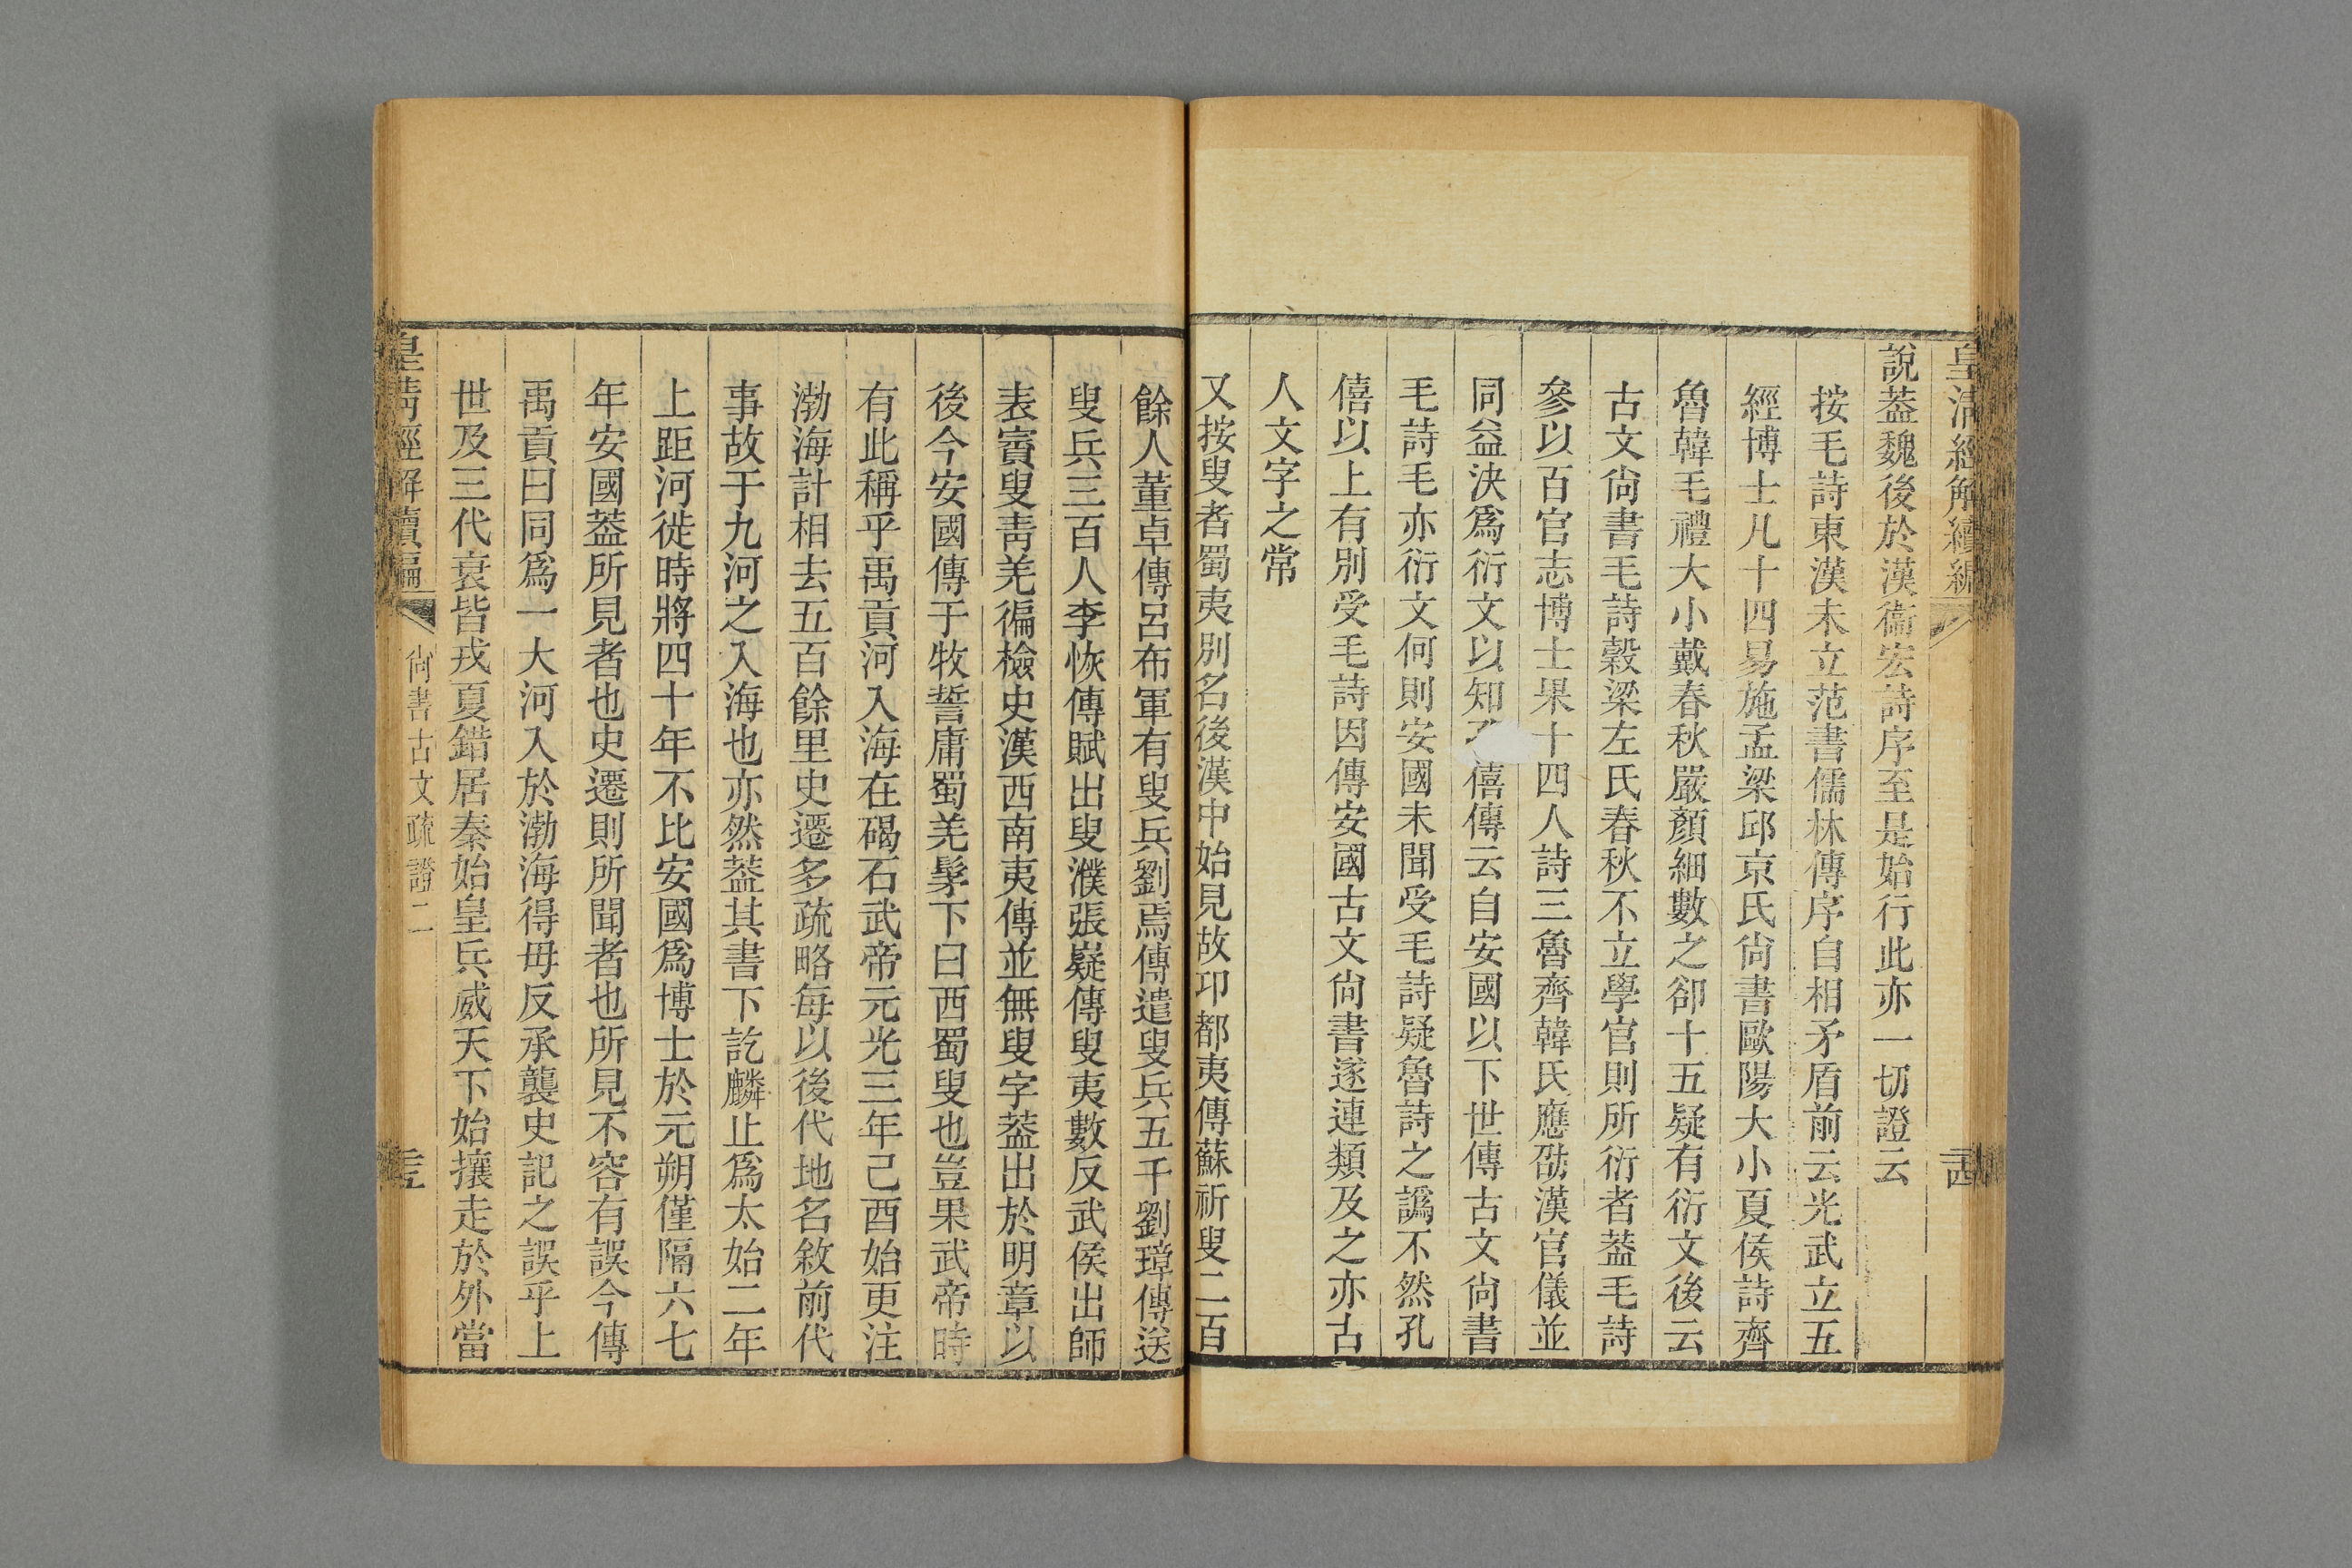 皇清經解續編
說葢魏後於漢衞宏詩序至是始行此亦一切證云
按毛詩東漢未立范書儒林傳序自相矛盾前云光武立五
經博士凡十四易施孟梁邱京氏尙書歐陽大小夏侯詩齊
魯韓毛禮大小戴春秋嚴顏細數之卻十五疑有衍文後云
古文尙書毛詩穀梁左氏春秋不立學官則所衍者葢毛詩
參以百官志博士果十四人詩三魯齊韓氏應劭漢官儀並
同益決爲衍文以知僖傳云自安國以下世傳古文尙書
毛詩毛亦衍文何則安國未聞受毛詩疑魯詩之譌不然孔
僖以上有別受毛詩因傳安國古文尙書遂連類及之亦古
人文字之常
又按叟者蜀夷別名後漢中始見故卭都夷傳蘇祈叟二百
餘人董卓傳呂布軍有叟兵劉焉傳遣叟兵五千劉璋傳送
叟兵三百人李恢傳賦出叟濮張嶷傳叟夷數反武侯出師
表賨叟靑羌徧檢史漢西南夷傳並無叟字葢出於明章以
後今安國傳于牧誓庸蜀羌髳下曰西蜀叟也豈果武帝時
有此稱乎禹貢河入海在碣石武帝元光三年己酉始更注
渤海計相去五百餘里史遷多疏略每以後代地名敘前代
事故于九河之入海也亦然葢其書下訖麟止爲太始二年
上距河徙時將四十年不比安國爲博士於元朔僅隔六七
年安國葢所見者也史遷則所聞者也所見不容有誤今傳
禹貢曰同爲一大河入於渤海得毋反承襲史記之誤乎上
世及三代衰皆戎夏錯居秦始皇兵威天下始攘走於外當
皇淸經解續編 尙書古文疏證二